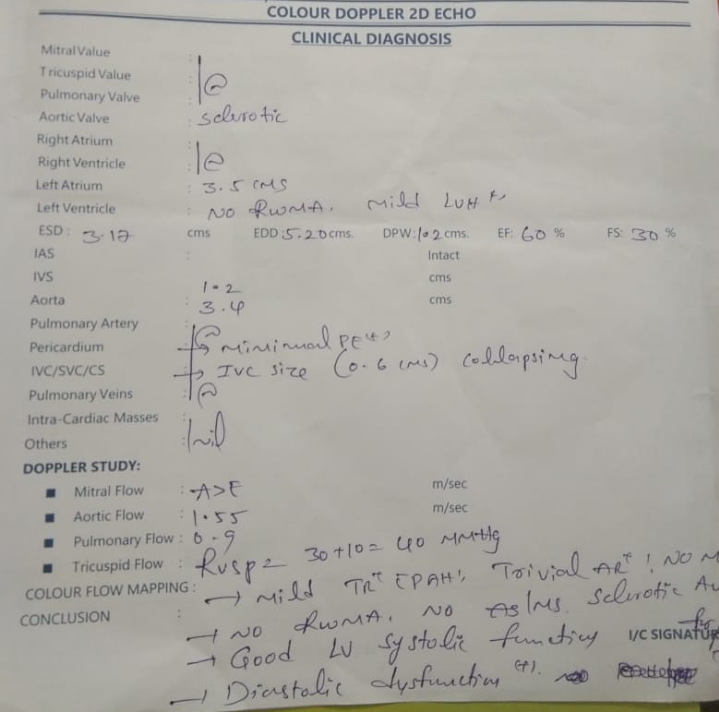 COLOUR DOPPLER 2D ECHO
CLINICAL DIAGNOSIS
Mitral Value :
Tricuspid Value : N
Pulmonary Valve :
Aortic Valve : Sclerotic
Right Atrium :
Right Ventricle : N
Left Atrium : 3.5 cms
Left Ventricle : NO RWMA. Mild LVH +
ESD : 3.17 cms EDD : 5.20 cms. DPW: 1.2 cms. EF: 60 % FS: 30 %
IAS : Intact
IVS 1.2 cms
Aorta : 3.4 cms
Pulmonary Artery : N
Pericardium → Minimal PE (+)
IVC/SVC/CS → IVC size (0.6 cms) collapsing.
Pulmonary Veins : N
Intra-Cardiac Masses :
Others : nil
DOPPLER STUDY:
■ Mitral Flow : A>E m/sec
■ Aortic Flow : 1.55 m/sec
■ Pulmonary Flow : 0.9
■ Tricuspid Flow : RVSP = 30+10 = 40 MMHg
COLOUR FLOW MAPPING : → Mild TR+ PAH, Trivial AR+, NO M
CONCLUSION : → NO RWMA. NO AS/MS. Sclerotic AV
→ Good LV systolic function I/C SIGNATUR
→ Diastolic dysfunction (+). no